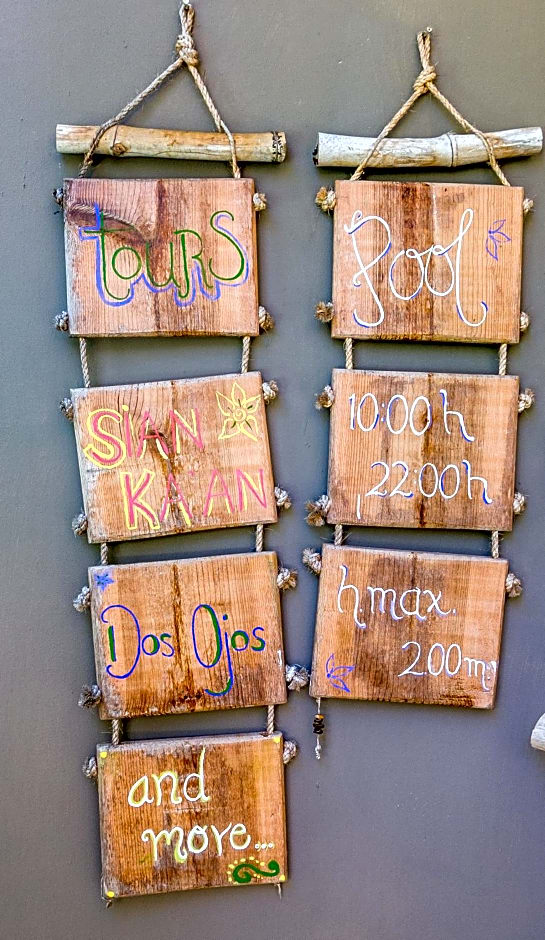 tours
SIAN
KA'AN
Dos Ojos
and
more...
Pool
10:00h
22:00h
h.max.
2.00m.